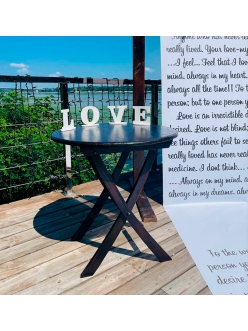 LOVE
Anyone who has never
really lived. Your love-my
....I feel... Feel that I lo
mind, always in my heart,
always all the time!! To t
person; but to one person y
Love is an irresistible d
desired. Love is not blind
ee things others fail to se
really loved has never re
medicine. I dont think....
....Always on my mind, a
always in my dreams, alwa
To the w
person yo
desire